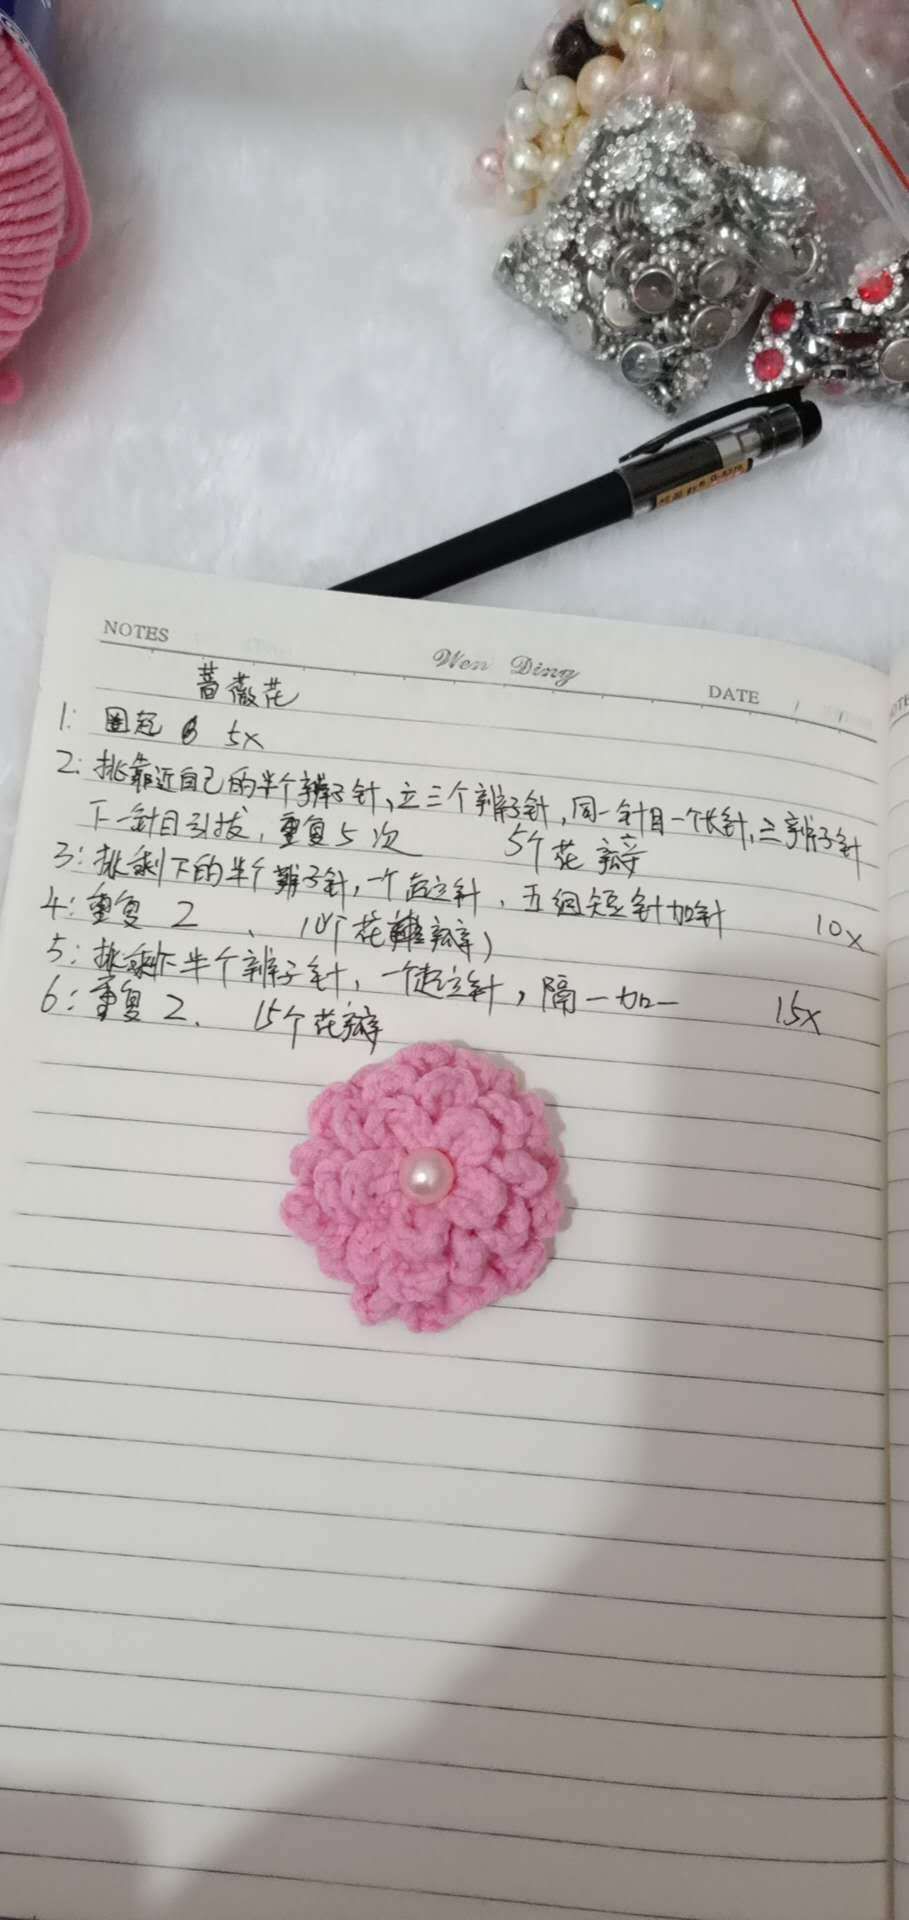 NOTES
Wen Ding
DATE / /
蔷薇花
1: 圈起 5X
2: 挑靠近自己的半个辫子针,立三个辫子针,同一针目一个长针,三辫子针
下一针目引拔,重复5次 5个花瓣
3: 挑剩下的半个辫子针,一个起立针,五组短针加针 10X
4: 重复2、10个花瓣)
5: 挑剩下半个辫子针,一个起立针,隔一加一 15X
6: 重复2. 15个花瓣